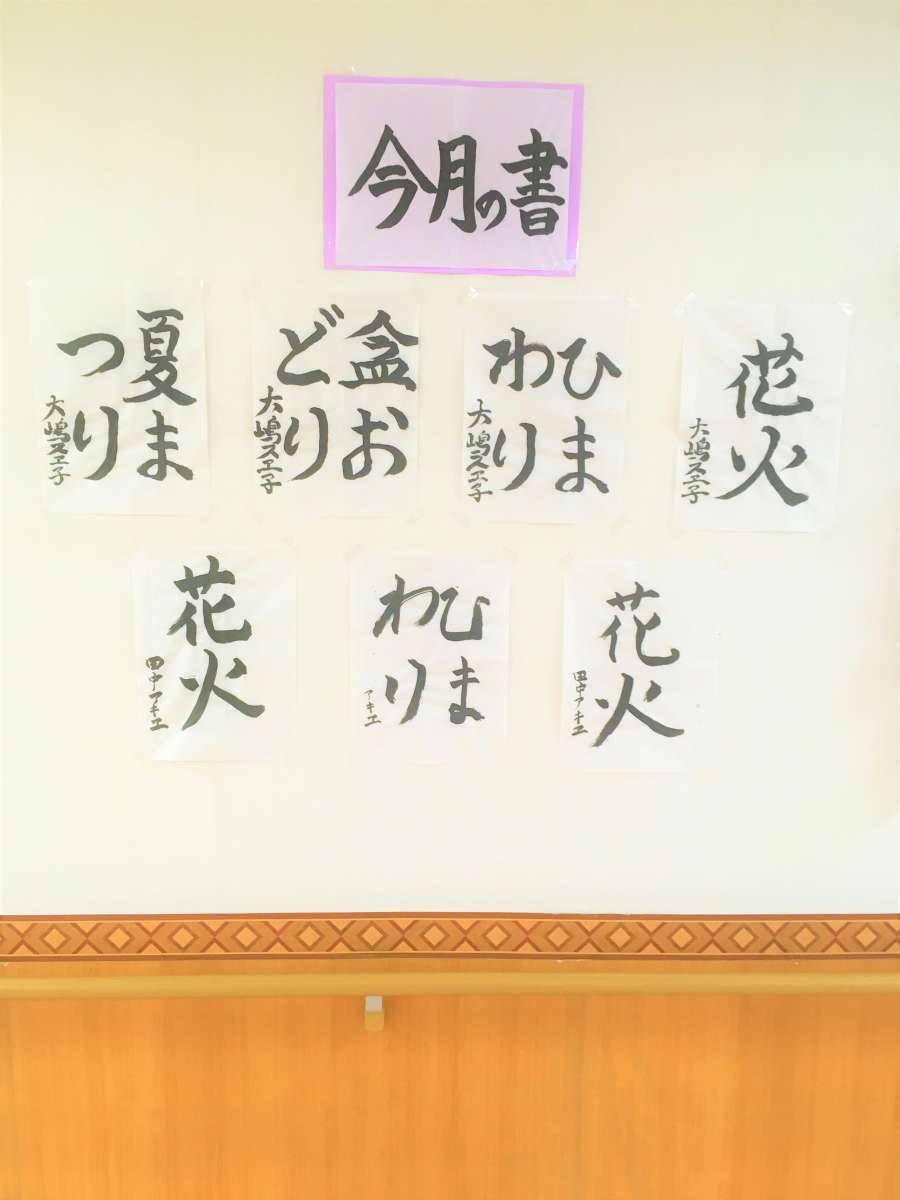 今月の書
夏ま
つり
大嶋スヱ子
盆お
どり
大嶋スヱ子
ひま
わり
大嶋スヱ子
花火
大嶋スヱ子
花火
田中アキエ
ひま
わり
アキエ
花火
田中アキエ